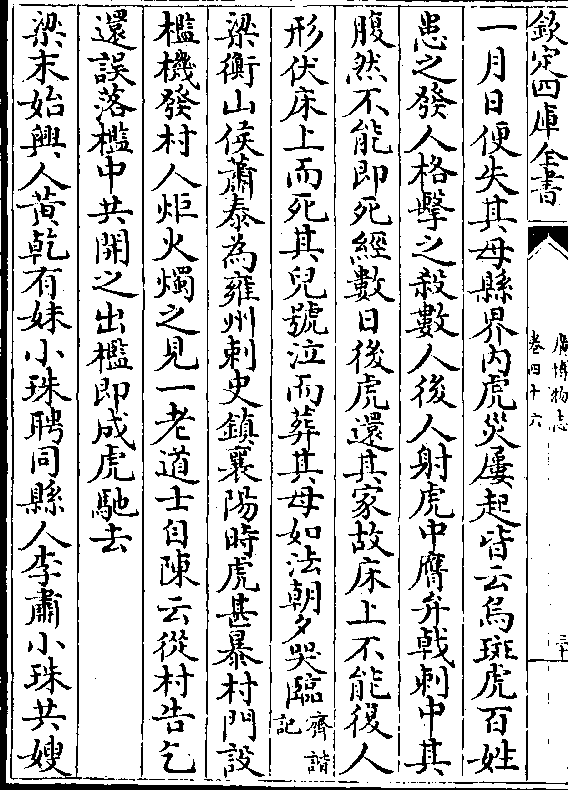 欽定四庫全書
廣博物志
卷四十六
一月日便失其母縣界内虎災屢起皆云烏斑虎百姓
患之發人格擊之殺數人後人射虎中膺并戟刺中其
腹然不能即死經數日後虎還其家故床上不能復人
形伏床上而死其兒號泣而葬其母如法朝夕哭臨齊諧記
梁衡山侯蕭泰為雍州刺史鎮襄陽時虎甚暴村門設
檻機發村人炬火燭之見一老道士自陳云從村告乞
還誤落檻中共開之出檻即成虎馳去
梁末始興人黄乾有妹小珠聘同縣人李肅小珠共嫂